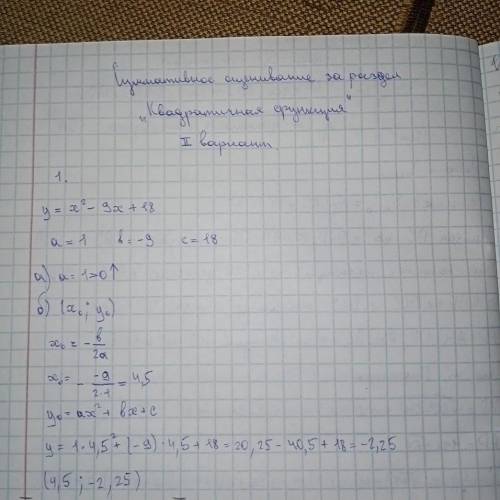 Суммативное оценивание за раздел
„Квадратичная функция"
II вариант
1.
y = x² - 9x + 18
a = 1 b = -9 c = 18
а) a = 1>0↑
б) (x₀; y₀)
x₀ = - b/2a
x₀ = - -9/2·1 = 4,5
y₀ = ax² + bx + c
y = 1·4,5² + (-9)·4,5 + 18 = 20,25 - 40,5 + 18 = -2,25
(4,5; -2,25)